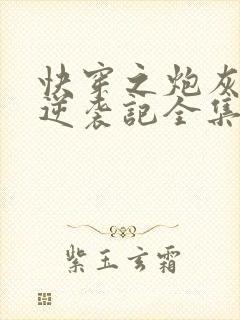 快穿之炮灰
逆袭記全集
紫玉玄霜